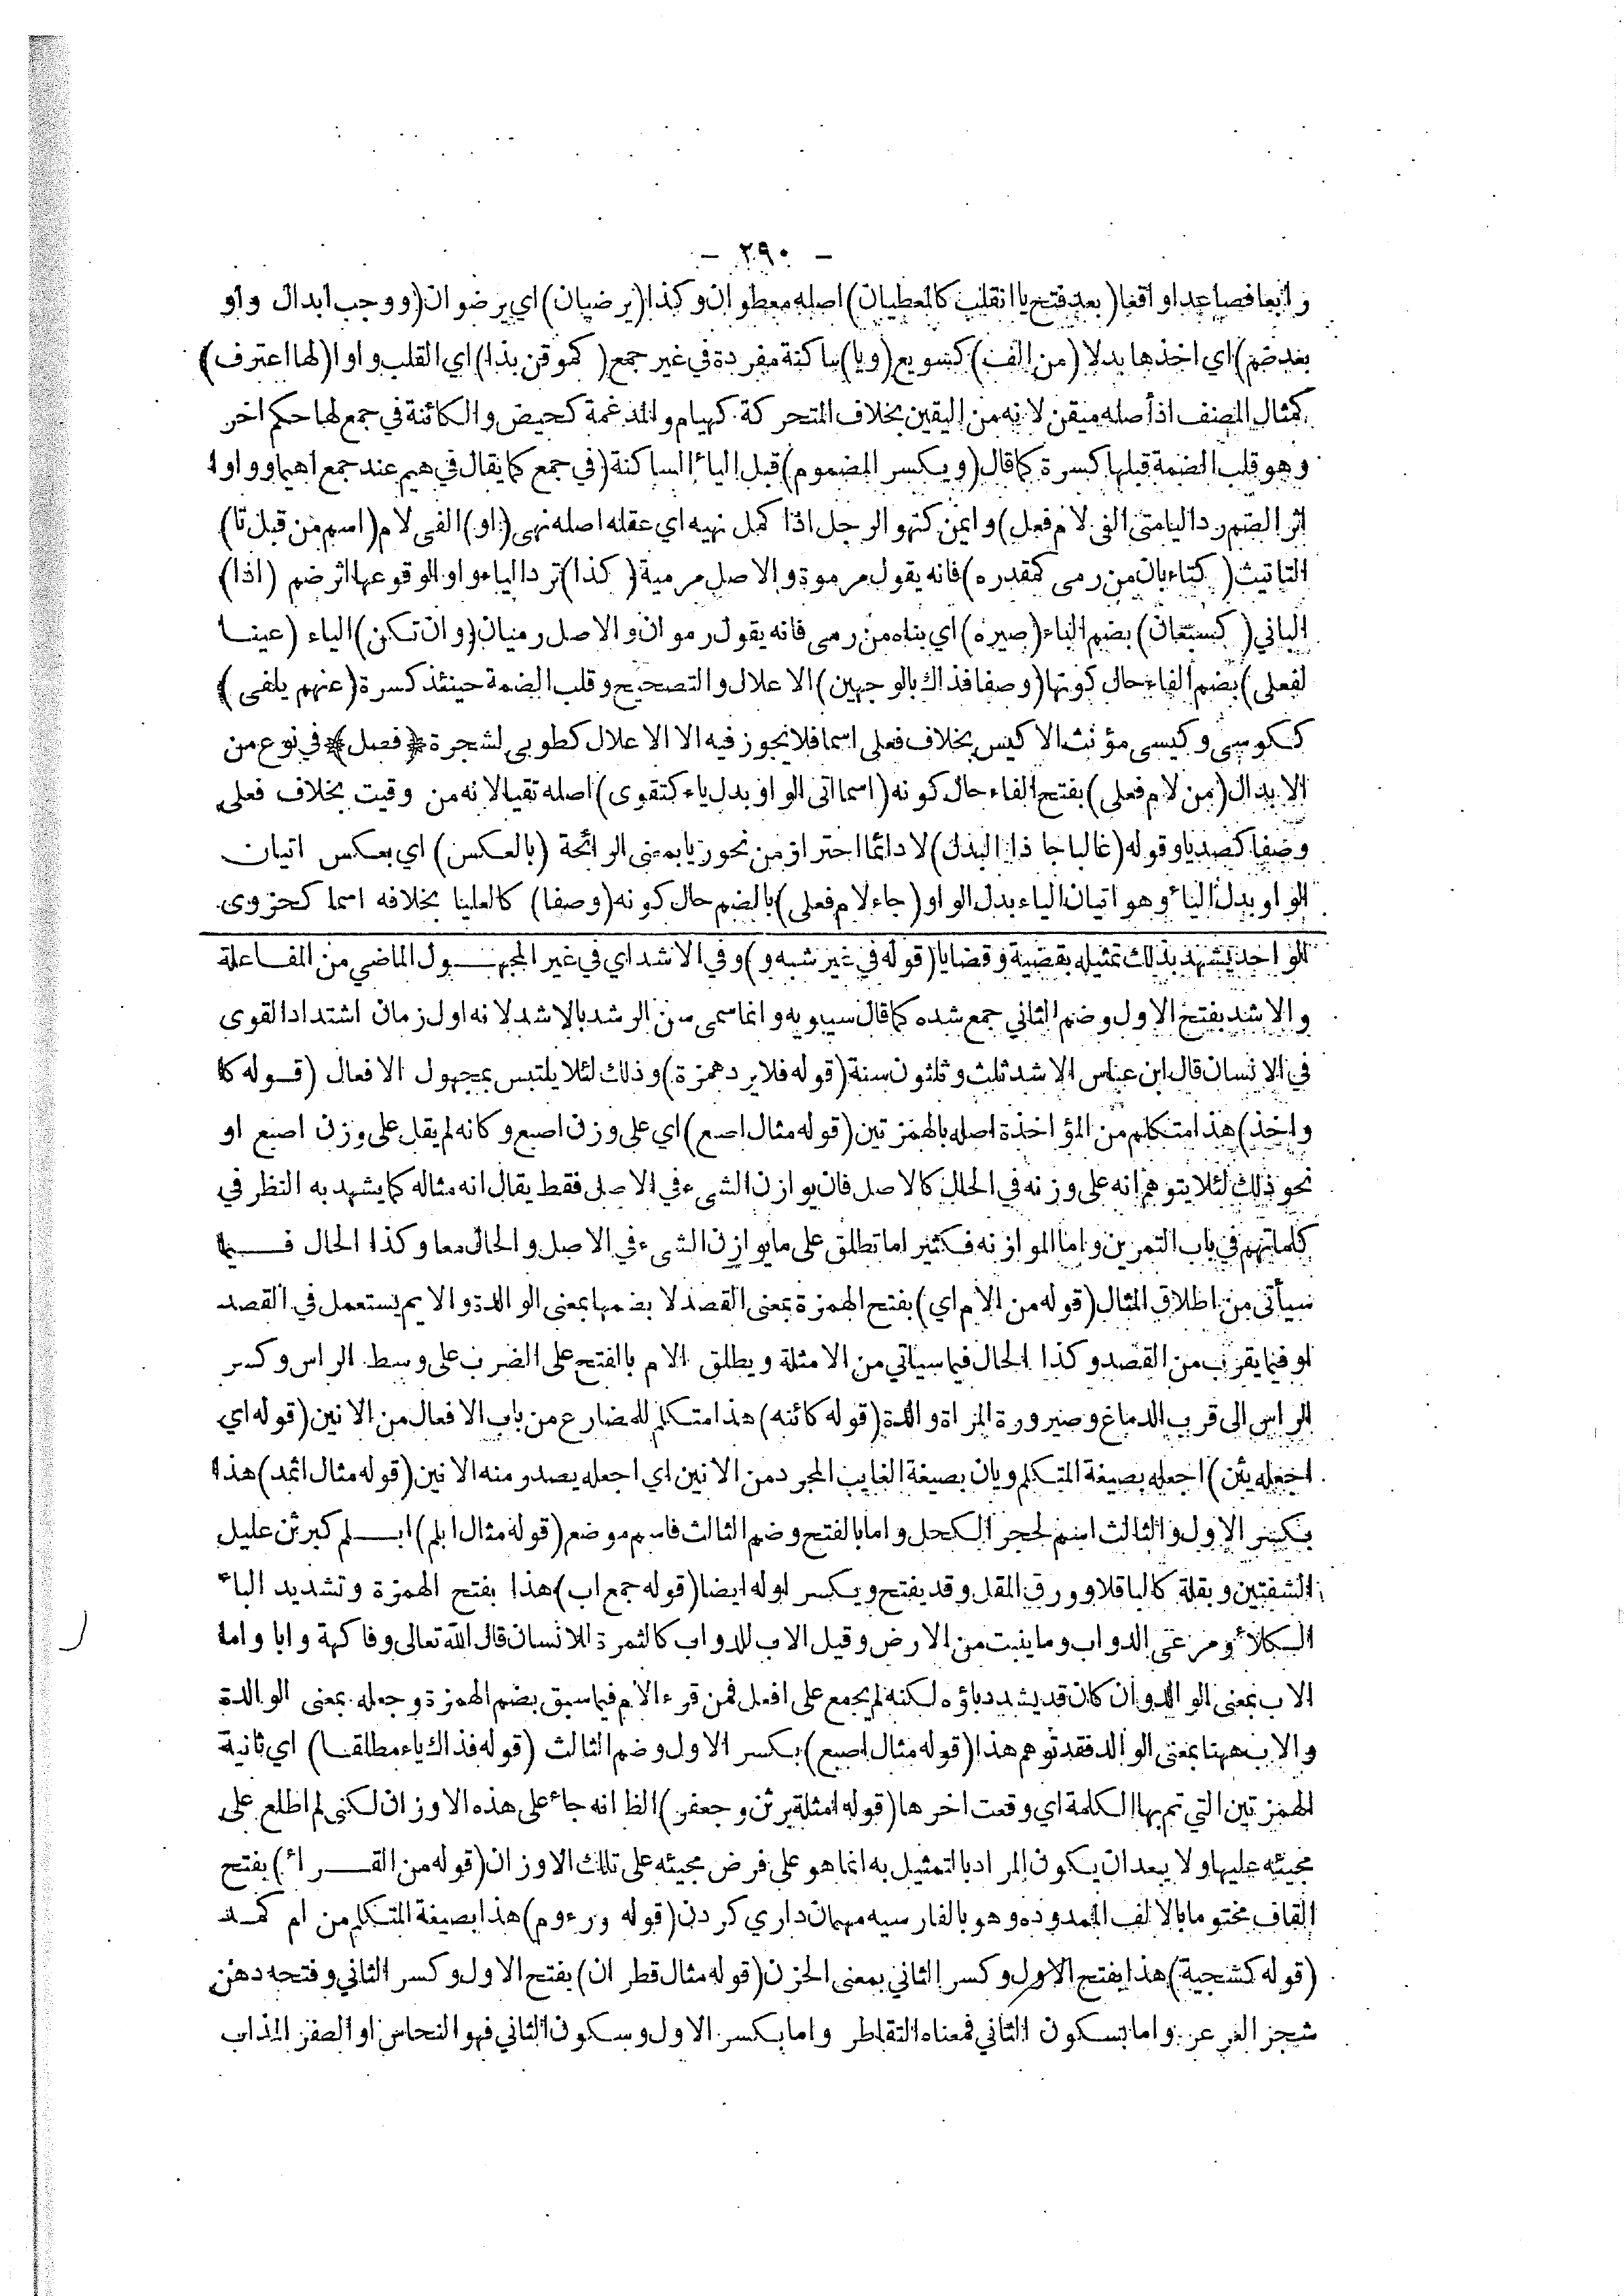 - ٢٩٠ -
رابعا فصاعدا واقعا (بعد فتح يا انقلب كالمعطيان) اصله معطوان وكذا (يرضيان) اي يرضوان (ووجب ابدال واو
بعد ضم) اي اخذها بدلا (من الف) كبويع (ويا) ساكنة مفردة في غير جمع (كموقن بذا) اي القلب واوا (لها اعترف)
كمثال المصنف اذ أصله ميقن لانه من اليقين بخلاف المتحركة كهيام والمدغمة كحيض والكائنة في جمع لها حكم اخر
وهو قلب الضمة قبلها كسرة كما قال (ويكسر المضموم) قبل الياء الساكنة (في جمع كما يقال في هيم عند جمع اهيما وواوا
اثر الضم رد اليا متى الفى لام فعل) وايمن كنهو الرجل اذا كمل نهيه اي عقله اصله نهى (او) الفى لام (اسم من قبل تا)
التانيث (كتاء بان من رمى كمقدره) فانه يقول مرموة والاصل مرمية (كذا) ترد الياء واوا لوقوعها اثر ضم (اذا)
الباني (كسبعان) بضم الباء (صيره) اي بناه من رمى فانه يقول رموان والاصل رميان (وان تكن) الياء (عينا
لفعلى) بضم الفاء حال كونها (وصفا فذاك بالوجهين) الاعلال والتصحيح وقلب الضمة حينئذ كسرة (عنهم يلفى)
ككوسى وكيسى مؤنث الاكيس بخلاف فعلى اسما فلا يجوز فيه الا الاعلال كطوبى لشجرة ﴿فصل﴾ في نوع من
الابدال (من لام فعلى) بفتح الفاء حال كونه (اسما اتى الواو بدل ياء كتقوى) اصله تقيا لانه من وقيت بخلاف فعلى
وصفا كصديا وقوله (غالبا جا ذا البدل) لا دائما احتراز من نحو ريا بمعنى الرائحة (بالعكس) اي بعكس اتيان
الواو بدل الياء وهو اتيان الياء بدل الواو (جاء لام فعلى) بالضم حال كونه (وصفا) كالعليا بخلافه اسما كحزوى
الواحد يشهد بذلك تمثيله بقضية وقضايا (قوله في غير شبه و) وفي الاشد اي في غير المجهول الماضي من المفاعلة
والاشد بفتح الاول وضم الثاني جمع شده كما قال سيبويه وانما سمى سن الرشد بالاشد لانه اول زمان اشتداد القوى
في الانسان قال ابن عباس الاشد ثلث وثلثون سنة (قوله فلا يرد همزة) وذلك لئلا يلتبس بمجهول الافعال (قوله كا
واخذ) هذا متكلم من المؤاخذة اصله بالهمزتين (قوله مثال اصبع) اي على وزن اصبع وكانه لم يقل على وزن اصبع او
نحو ذلك لئلا يتوهم انه على وزنه في الحال كالاصل فان يوازن الشيء في الاصل فقط يقال انه مثاله كما يشهد به النظر في
كلماتهم في باب التمرين واما الموازنه فكثيرا ما تطلق على ما يوازن الشيء في الاصل والحال معا وكذا الحال فيما
سيأتى من اطلاق المثال (قوله من الام اي) بفتح الهمزة بمعنى القصد لا بضمها بمعنى الوالدة والا يم يستعمل في القصد
او فيما يقرب من القصد وكذا الحال فيما سياتي من الامثلة ويطلق الام بالفتح على الضرب على وسط الراس وكسر
الراس الى قرب الدماغ وصيرورة المراة والدة (قوله كائنه) هذا متكلم للمضارع من باب الافعال من الانين (قوله اي
اجعله يئن) اجعله بصيغة المتكلم ويان بصيغة الغايب المجرد من الانين اي اجعله يصدر منه الانين (قوله مثال اثمد) هذا
بكسر الاول والثالث اسم لحجر الكحل واما بالفتح وضم الثالث فاسم موضع (قوله مثال ابلم) ابلم كبرثن عليل
الشفتين وبقلة كالباقلا وورق المقل وقد يفتح ويكسر اوله ايضا (قوله جمع اب) هذا بفتح الهمزة وتشديد الباء
الكلأ ومرعى الدواب وما ينبت من الارض وقيل الاب للدواب كالثمرة للانسان قال الله تعالى وفاكهة وابا واما
الاب بمعنى الوالد وان كان قد يشدد باؤه لكنه لم يجمع على افعل فمن قرء الام فيما سبق بضم الهمزة وجعله بمعنى الوالدة
والاب ههنا بمعنى الوالد فقد توهم هذا (قوله مثال اصبع) بكسر الاول وضم الثالث (قوله فذاك ياء مطلقا) اي ثانية
الهمزتين التي تم بها الكلمة اي وقعت اخرها (قوله امثلة برثن وجعفر) الظ انه جاء على هذه الاوزان لكنى لم اطلع على
مجيئه عليها ولا يبعد ان يكون المراد بالتمثيل به انما هو على فرض مجيئه على تلك الاوزان (قوله من القراء) بفتح
القاف مختوما بالالف الممدوده وهو بالفارسيه مهمان داري كردن (قوله ورءوم) هذا بصيغة المتكلم من ام كمد
(قوله كشجية) هذا بفتح الاول وكسر الثاني بمعنى الحزن (قوله مثال قطران) بفتح الاول وكسر الثاني وفتحه دهن
شجر العرعر واما بسكون الثاني فمعناه التقاطر واما بكسر الاول وسكون الثاني فهو النحاس او الصفر المذاب